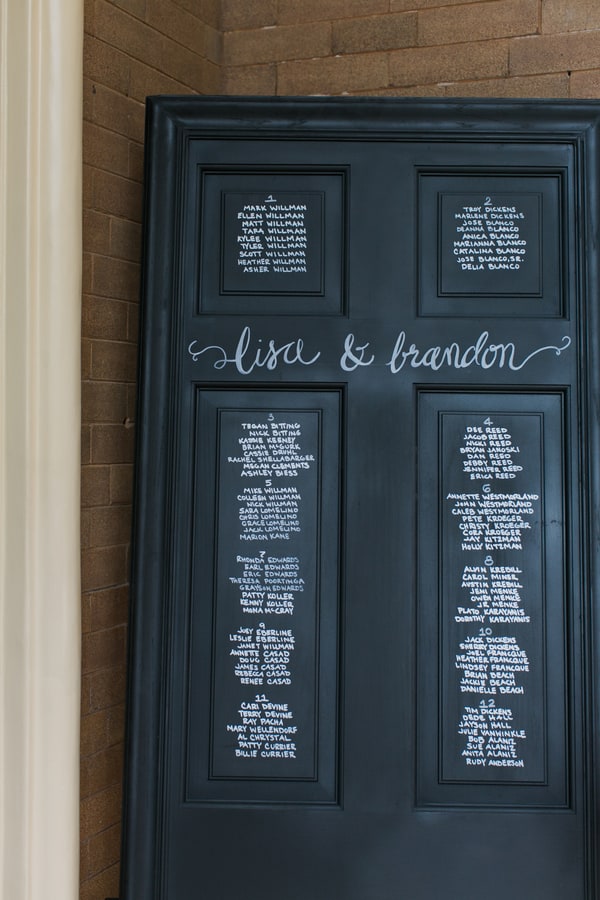 1
MARK WILLMAN
ELLEN WILLMAN
MATT WILLMAN
TARA WILLMAN
KYLEE WILLMAN
TYLER WILLMAN
SCOTT WILLMAN
HEATHER WILLMAN
ASHER WILLMAN
2
TROY DICKENS
MARLENE DICKENS
JOSE BLANCO
DEANNA BLANCO
ANICA BLANCO
MARIANNA BLANCO
CATALINA BLANCO
JOSE BLANCO, SR.
DELIA BLANCO
lisa & brandon
3
TEGAN BITTING
NICK BITTING
KARRIE KEENEY
BRIAN McGURK
CASSIE DRUHL
RACHEL SHELLABARGER
MEGAN CLEMENTS
ASHLEY BIESS
5
MIKE WILLMAN
COLLEEN WILLMAN
NICK WILLMAN
SARA LOMELINO
CHRIS LOMELINO
GRACE LOMELINO
JACK LOMELINO
MARION KANE
7
RHONDA EDWARDS
EARL EDWARDS
ERIC EDWARDS
THERESA POORTINGA
GRAYSON EDWARDS
PATTY KOLLER
KENNY KOLLER
MONA McCRAY
9
JOEY EBERLINE
LESLIE EBERLINE
JANET WILLMAN
ANNETTE CASAD
DOUG CASAD
JAMES CASAD
REBECCA CASAD
RENEE CASAD
11
CARI DEVINE
TERRY DEVINE
RAY PACHA
MARY WELLENDORF
AL CHRYSTAL
PATTY CURRIER
BILLIE CURRIER
4
DEE REED
JACOB REED
NICKI REED
BRYAN JANOSKI
DAN REED
DEBBY REED
JENNIFER REED
ERICA REED
6
ANNETTE WESTMORLAND
JOHN WESTMORLAND
CALEB WESTMORLAND
PETE KROEGER
CHRISTY KROEGER
CORA KROEGER
JAY KITZMAN
HOLLY KITZMAN
8
ALVIN KREBILL
CAROL MINER
AUSTIN KREBILL
JENI MENKE
OWEN MENKE
JR MENKE
PLATO KARAYANIS
DOROTHY KARAYANIS
10
JACK DICKENS
SHERRY DICKENS
JOEL FRANCQUE
HEATHER FRANCQUE
LINDSEY FRANCQUE
BRIAN BEACH
JACKIE BEACH
DANIELLE BEACH
12
TIM DICKENS
DEDE HALL
JAYSON HALL
JULIE VANWINKLE
BOB ALANIZ
SUE ALANIZ
ANITA ALANIZ
RUDY ANDERSON